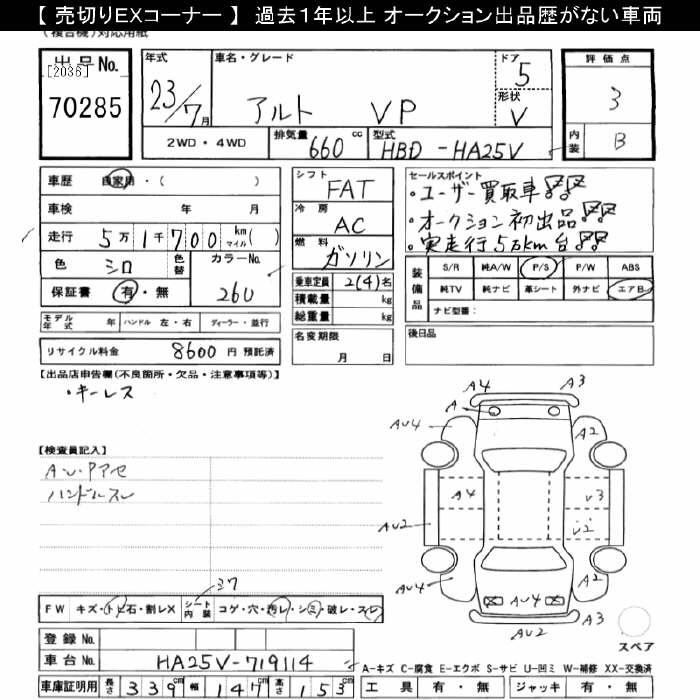 【 売切りEXコーナー 】 過去１年以上 オークション出品歴がない車両
(複合機)対応用紙
出品No.
[2036]
70285
年式
23/7月
車名・グレード
アルト VP
ドア 5
形状 V
評価点
3
内装 B
2WD・4WD
排気量 660 cc
型式 HBD-HA25V
車歴 自家用・( )
車検 年 月
走行 5万1千700 km マイル( )
色 シロ
色替
カラーNo. 26U
保証書 有・無
シフト FAT
冷房 AC
燃料 ガソリン
乗車定員 2(4)名
積載量 kg
総重量 kg
セールスポイント
・ユーザー買取車
・オークション初出品
・実走行5万km台
装備品
S/R 純A/W P/S P/W ABS
純TV 純ナビ 革シート 外ナビ エアB
ナビ型番:
モデル年式 年 ハンドル 左・右 ディーラー・並行
リサイクル料金 8600 円 預託済
名変期限
月 日
後日品
【出品店申告欄(不良箇所・欠品・注意事項等)】
・キーレス
【検査員記入】
A・U・Pアセ
ハンドルスレ
A4 A3
A
AU4 A2
A4 U3
AU2 U2
AU4 A2
AU4
AU2 A3
スペア
シワ
FW キズ・トビ石・割レX シート内装 コゲ・穴・汚レ・シミ・破レ・スレ
登録No.
車台No. HA25V-719114
A-キズ C-腐食 E-エクボ S-サビ U-凹ミ W-補修 XX-交換済
車庫証明用 長さ 339cm 幅 147cm 高さ 153cm
工具 有・無 ジャッキ 有・無